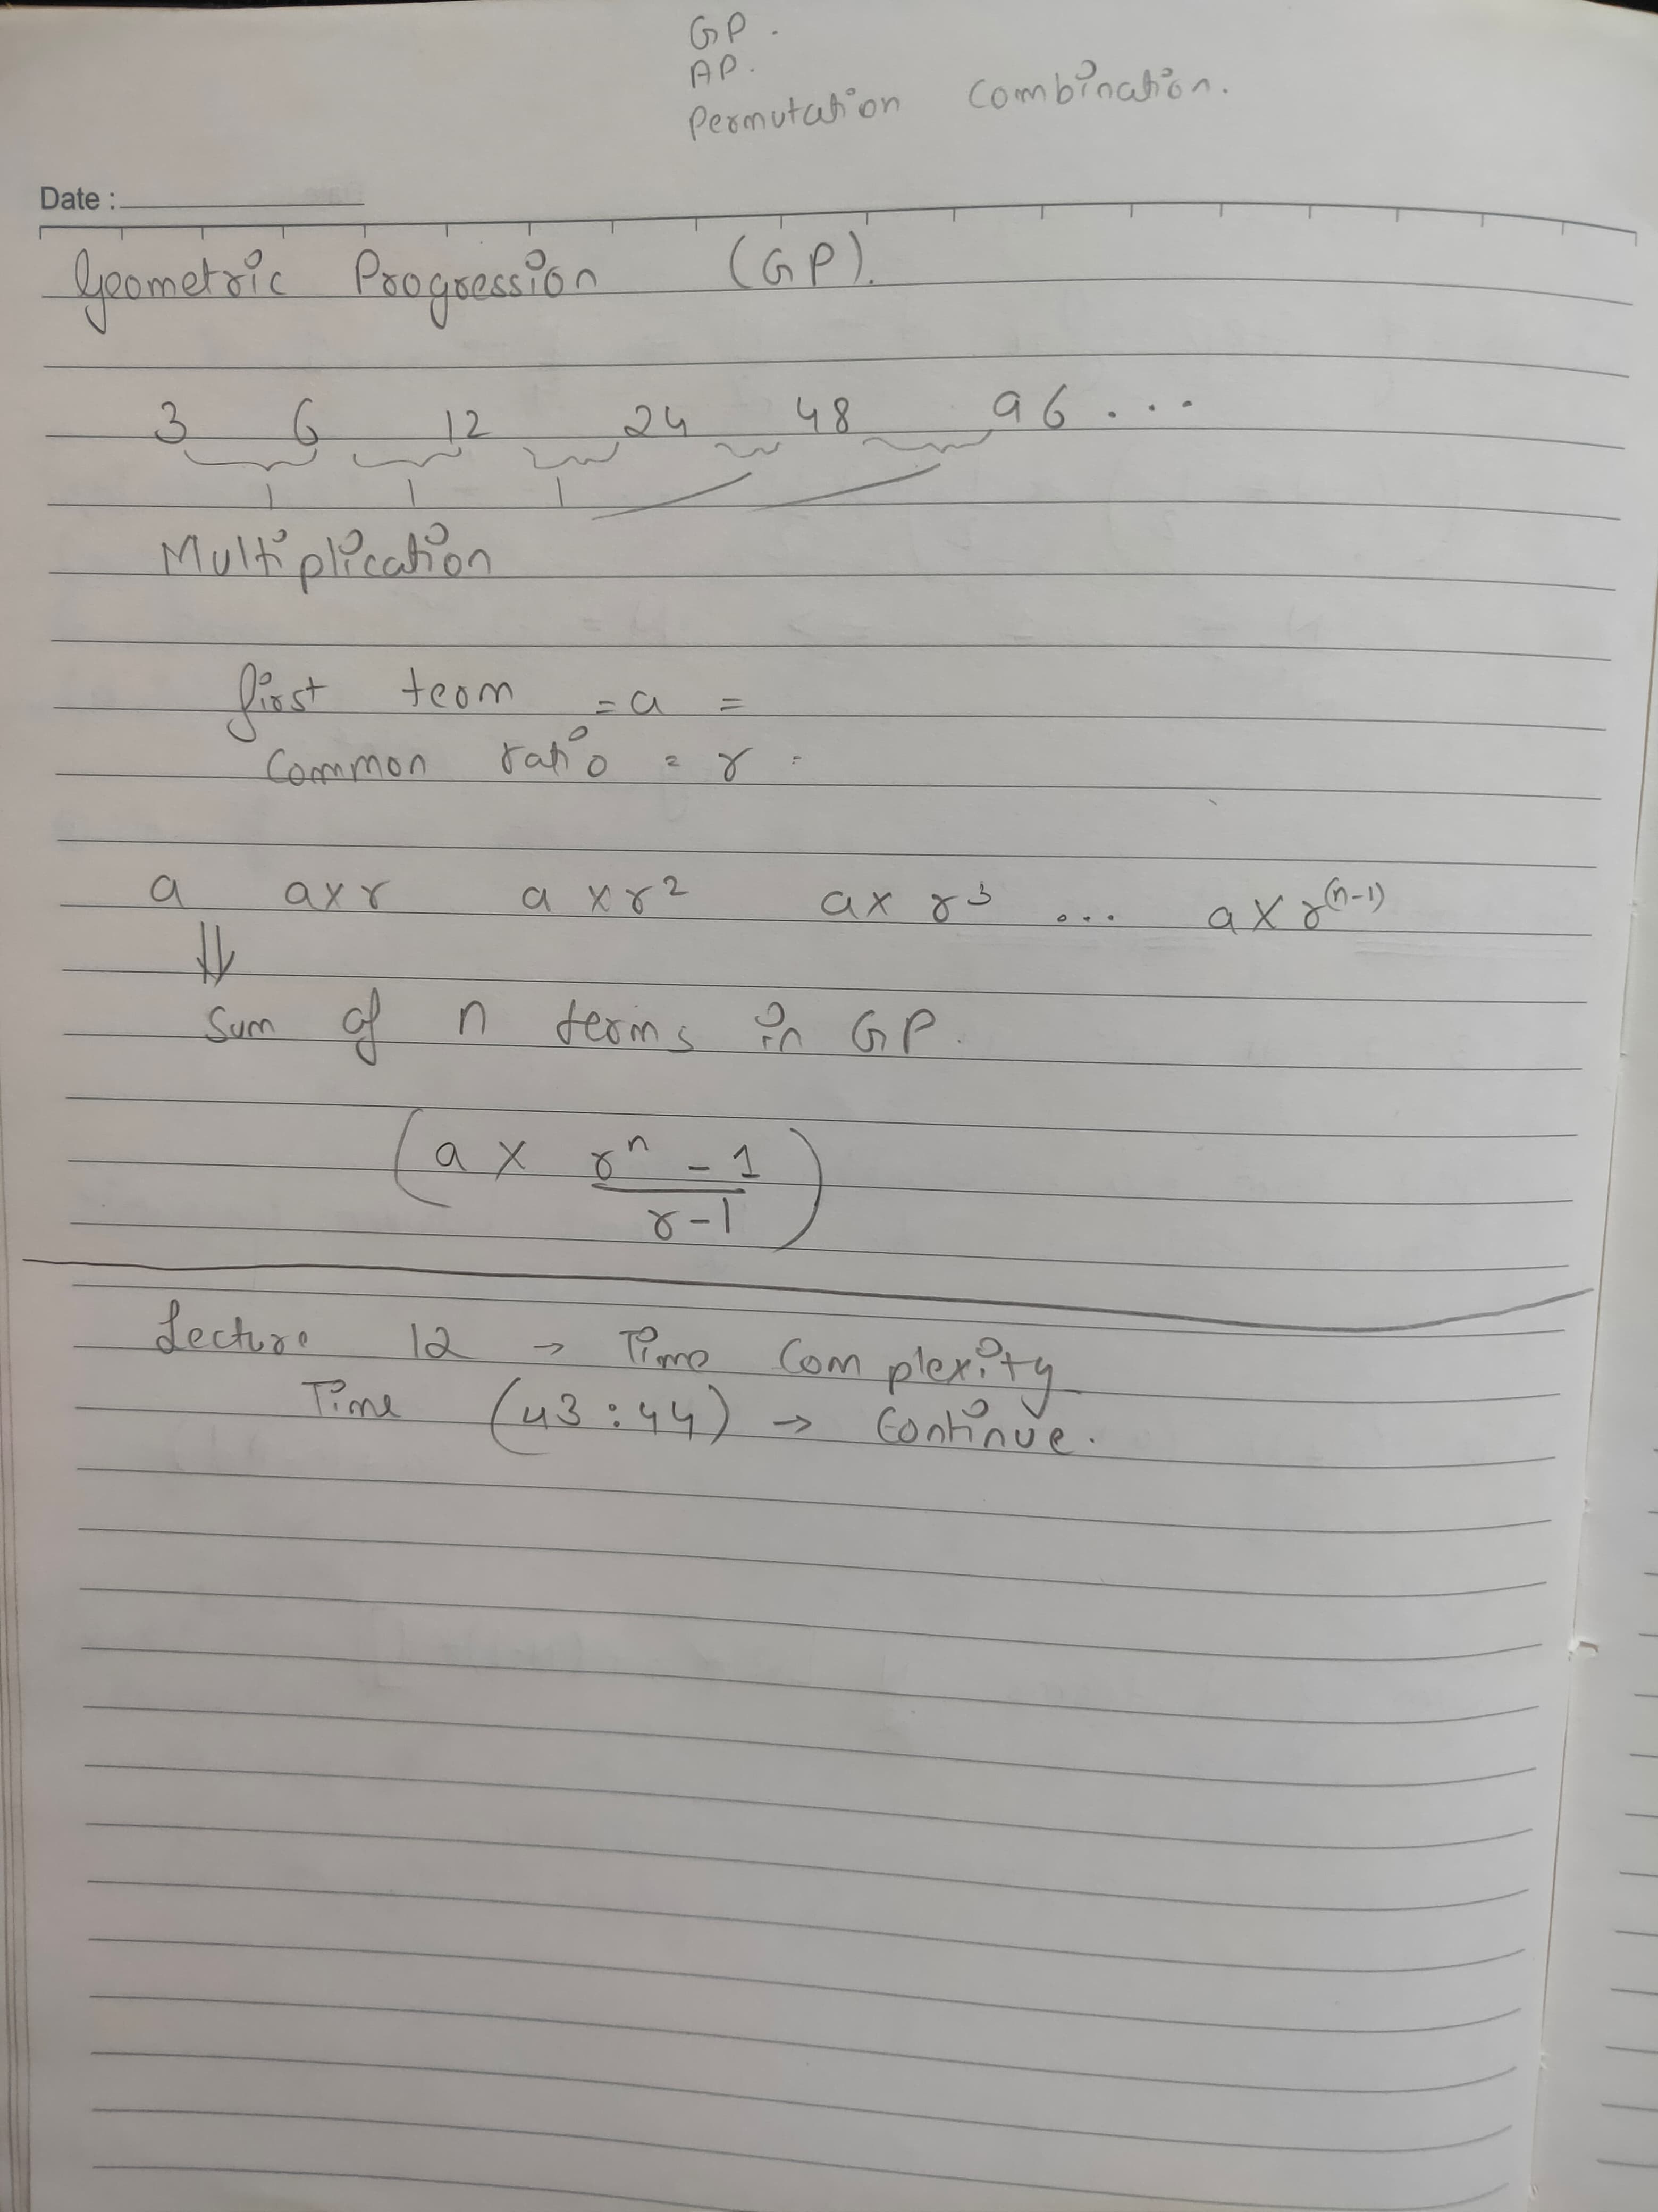 GP.
AP.
Permutation Combination.
Date :
Geometric Progression (GP).
3 6 12 24 48 96 ...
Multiplication
first term = a =
Common ratio = r =
a a×r a × r² a× r³ ... a × r⁽ⁿ⁻¹⁾
⇓
Sum of n terms in GP.
(a × rⁿ - 1
r-1)
Lecture 12 → Time Complexity
Time (43:44) → Continue.